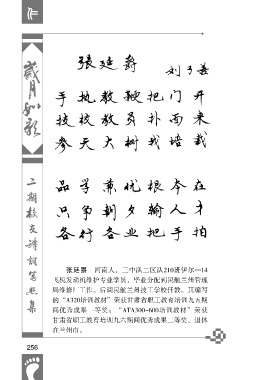 作
歲月如歌
二期校友诗词写照集
張延爵
刘了善
手執教鞭把门开
技校教员扑面来
参天大樹我培栽
品学兼优根本在
只争朝夕輸人才
各行各业把手拍
张延爵 河南人，三中队二区队210班伊尔—14
飞机发动机维护专业学员，毕业分配到民航兰州管理
局维修厂工作，后调民航兰州技工学校任教，其编写
的“A320培训教材”荣获甘肃省职工教育培训九五期
间优秀成果一等奖；“ATA300-600培训教材”荣获
甘肃省职工教育培训九六期间优秀成果二等奖。退休
在兰州市。
256